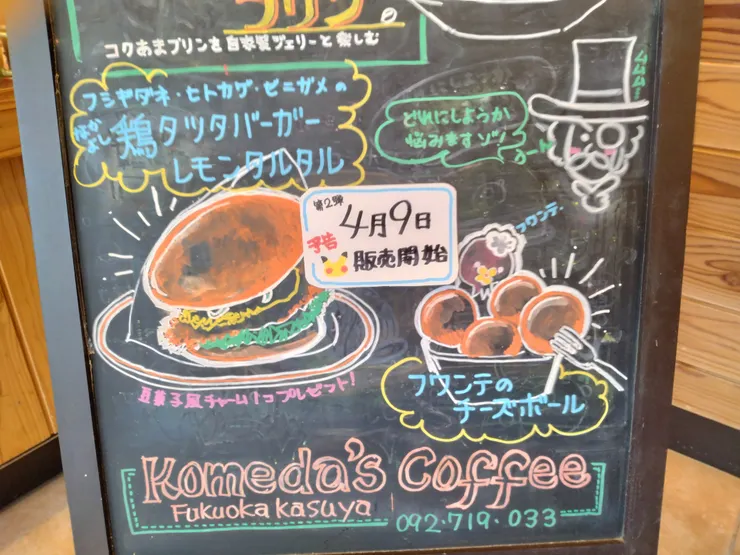 プリン。
コクあまプリンを自家製ジェリーと楽しむ
フシギダネ・ヒトカゲ・ゼニガメの
なかよし
鶏タツタバーガー
レモンタルタル
どれにしようか
悩みますゾ!
うーん
第2弾
予告
4月9日
販売開始
フワンテ
豆菓子風チャーム1コプレゼント!
フワンテの
チーズボール
Komeda's Coffee
Fukuoka kasuya
092.719.033